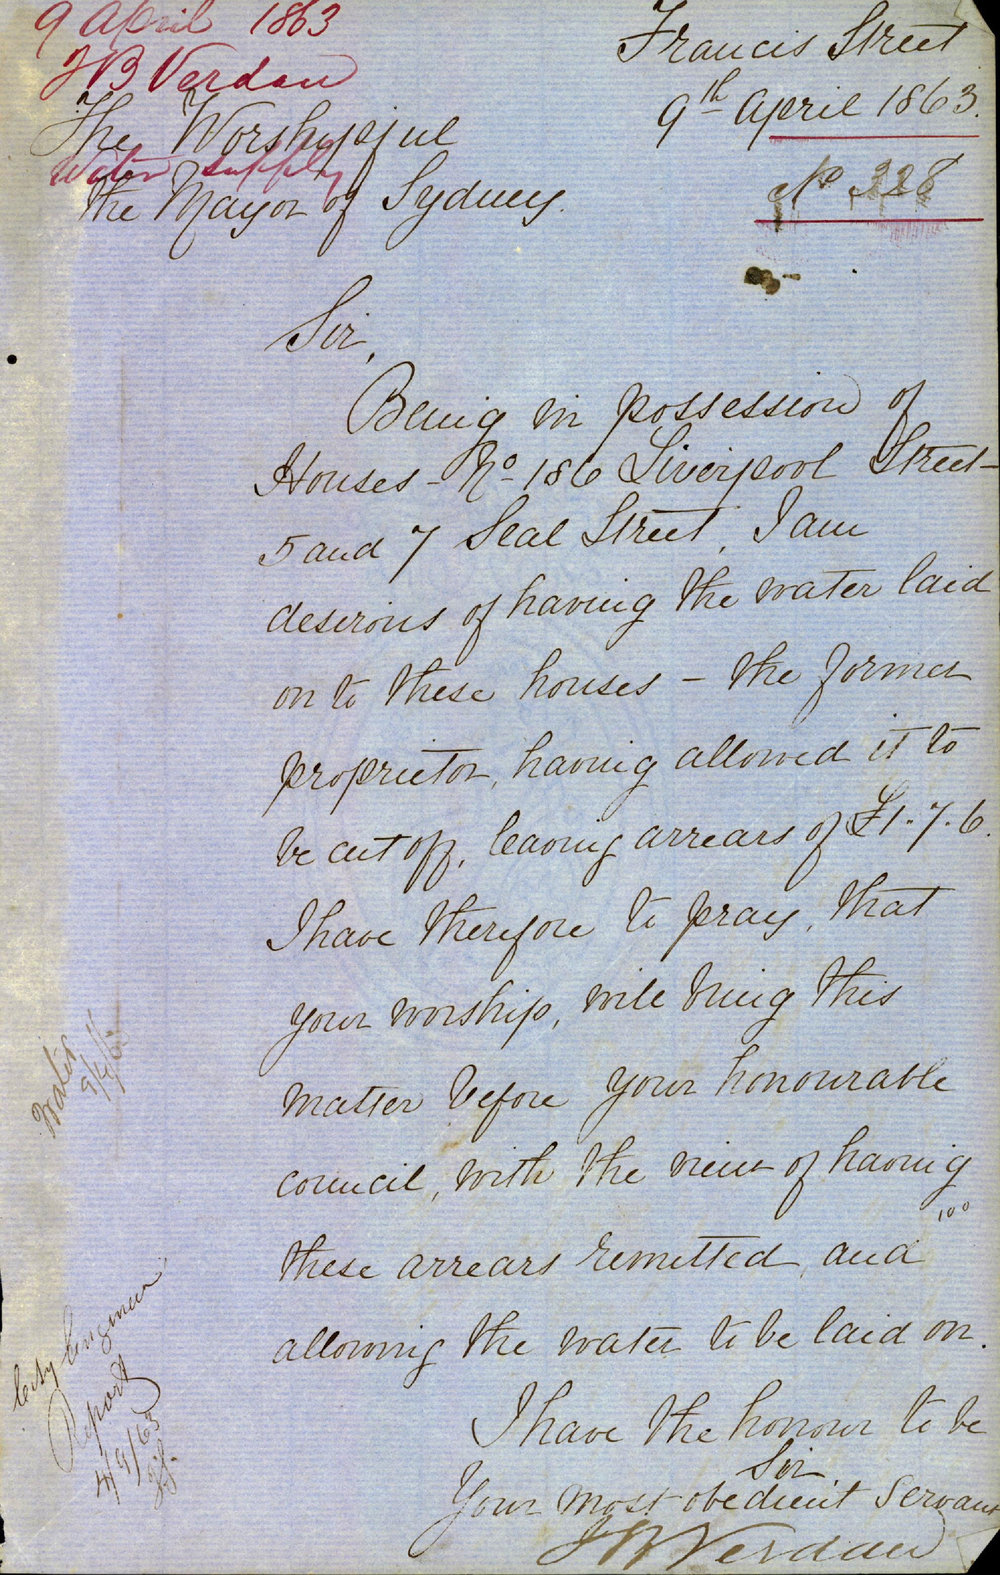 9 April 1863
J B Verdau
Water supply
Francis Street
9th April 1863.
No 328
The Worshipful
the Mayor of Sydney.
Sir,
Being in possession of
Houses - No 186 Liverpool Street -
5 and 7 Seal Street, I am
desirous of having the water laid
on to these houses - the former
proprietor, having allowed it to
be cut off, leaving arrears of £1.7.6.
I have therefore to pray, that
your worship, will bring this
matter before your honourable
council, with the view of having
these arrears remitted, and
allowing the water to be laid on.
I have the honour to be
Sir,
Your most obedient servant
J B Verdau
Water
City Engineer
Report